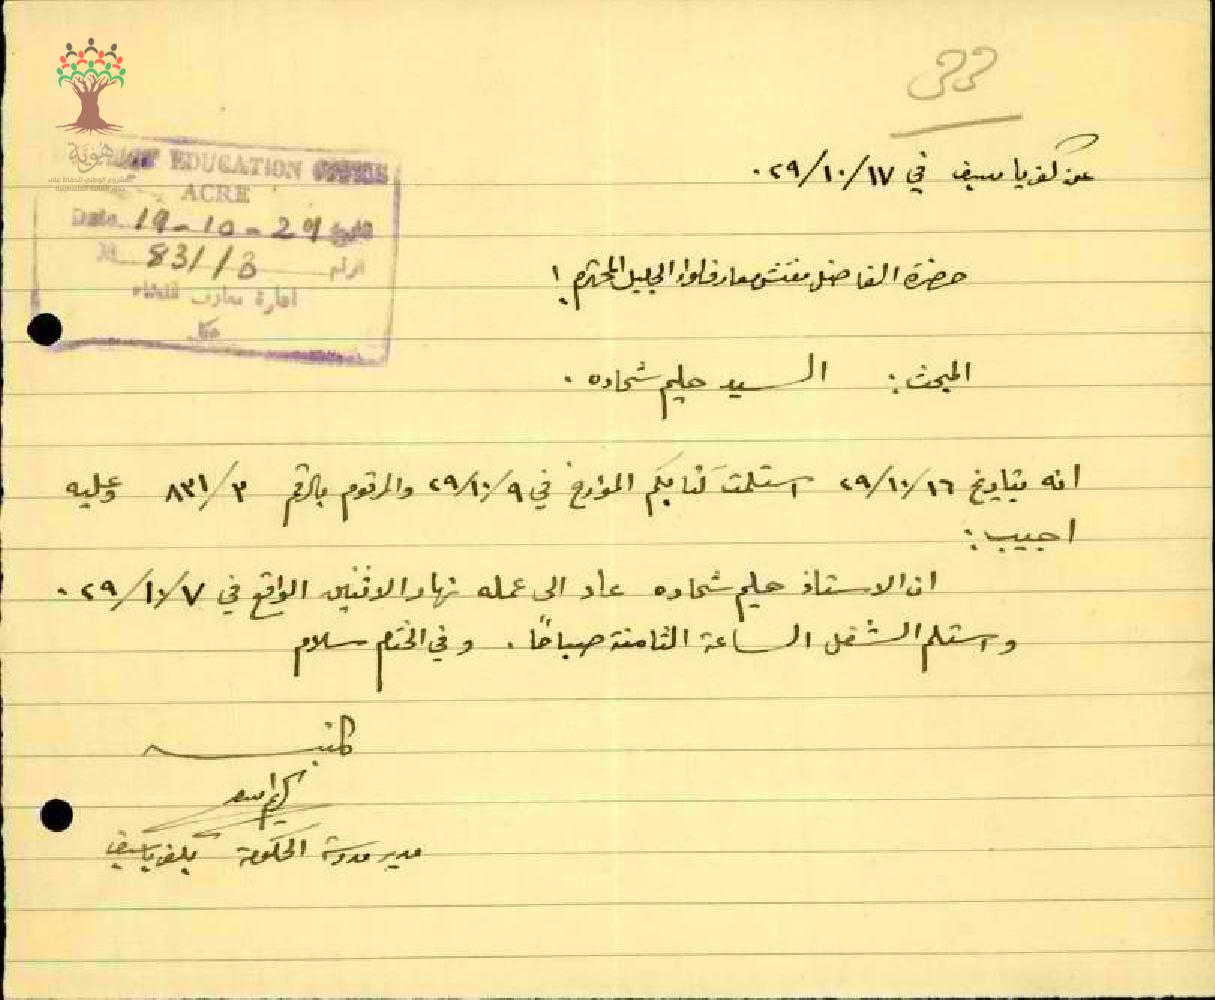 33
عن كفرياسيف في ١٧/١٠/٢٩.
هوية
DISTRICT EDUCATION OFFICE
ACRE
Date 19-10-29 تاريخ
No 831/3 الرقم
ادارة معارف قضاء
عكا
حضرة الفاضل مفتش معارف لواء الجليل المحترم!
المبحث: السيد حليم شحاده.
انه بتاريخ ١٦/١٠/٢٩ استلمت كتابكم المؤرخ في ٩/١٠/٢٩ والمرقوم بالرقم ٣/٨٣١ وعليه
اجيب:
ان الاستاذ حليم شحاده عاد الى عمله نهار الاثنين الواقع في ٧/١٠/٢٩.
واستلم الشغل الساعة الثامنة صباحًا. وفي الختام سلام
كاتبه
مدير مدرسة الحكومة بكفرياسيف